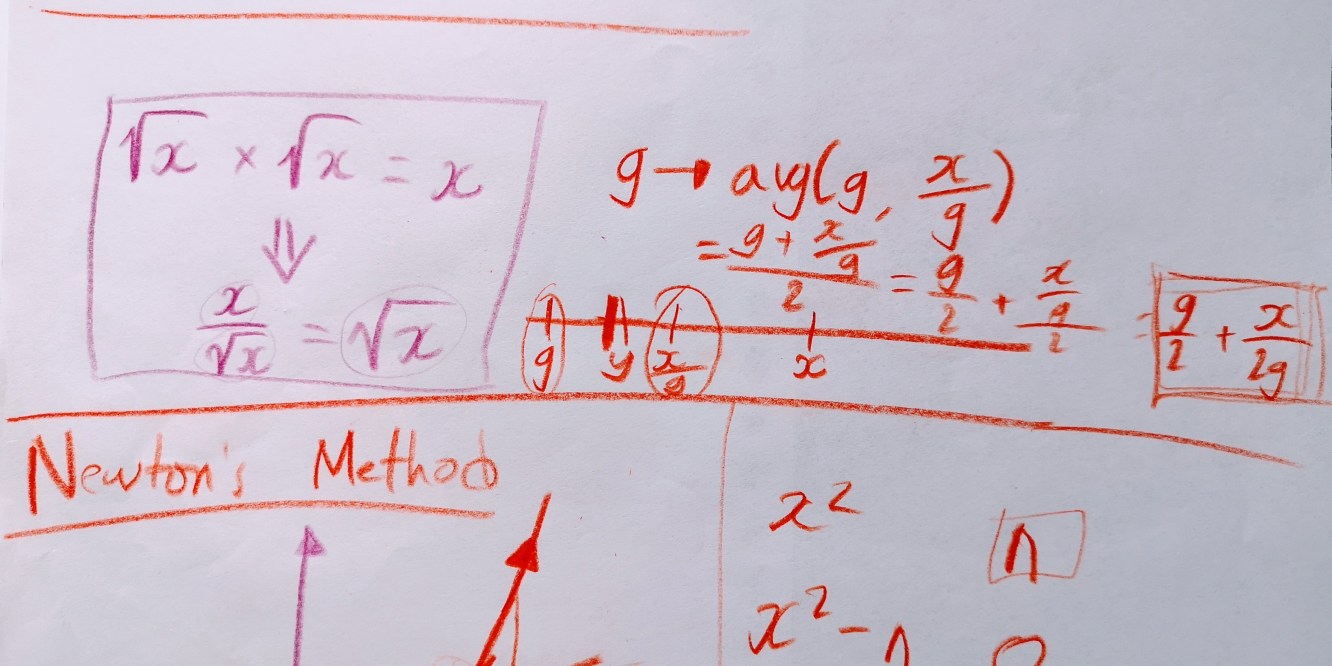 √x × √x = x
⇓
x/√x = √x
g → avg(g, x/g)
= (g + x/g)/2 = g/2 + (x/g)/2 = g/2 + x/2g
g y x/g x
Newton's Method
x²
n
x² -